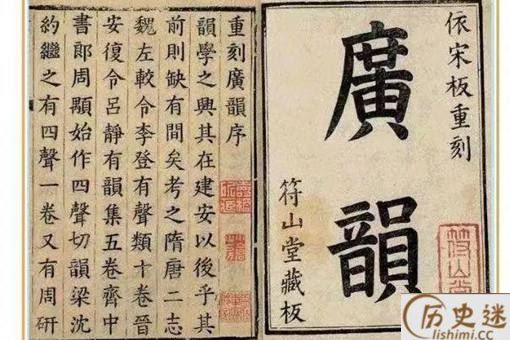 依宋板重刻
廣韻
符山堂藏板
符山堂
重刻廣韻序
韻學之興其在建安以後乎其
前則缺有間矣考之隋唐二志
魏左較令李登有聲類十卷晉
安復令呂靜有韻集五卷齊中
書郎周顒始作四聲切韻梁沈
約繼之有四聲一卷又有周研
历史迷
lishimi.cc